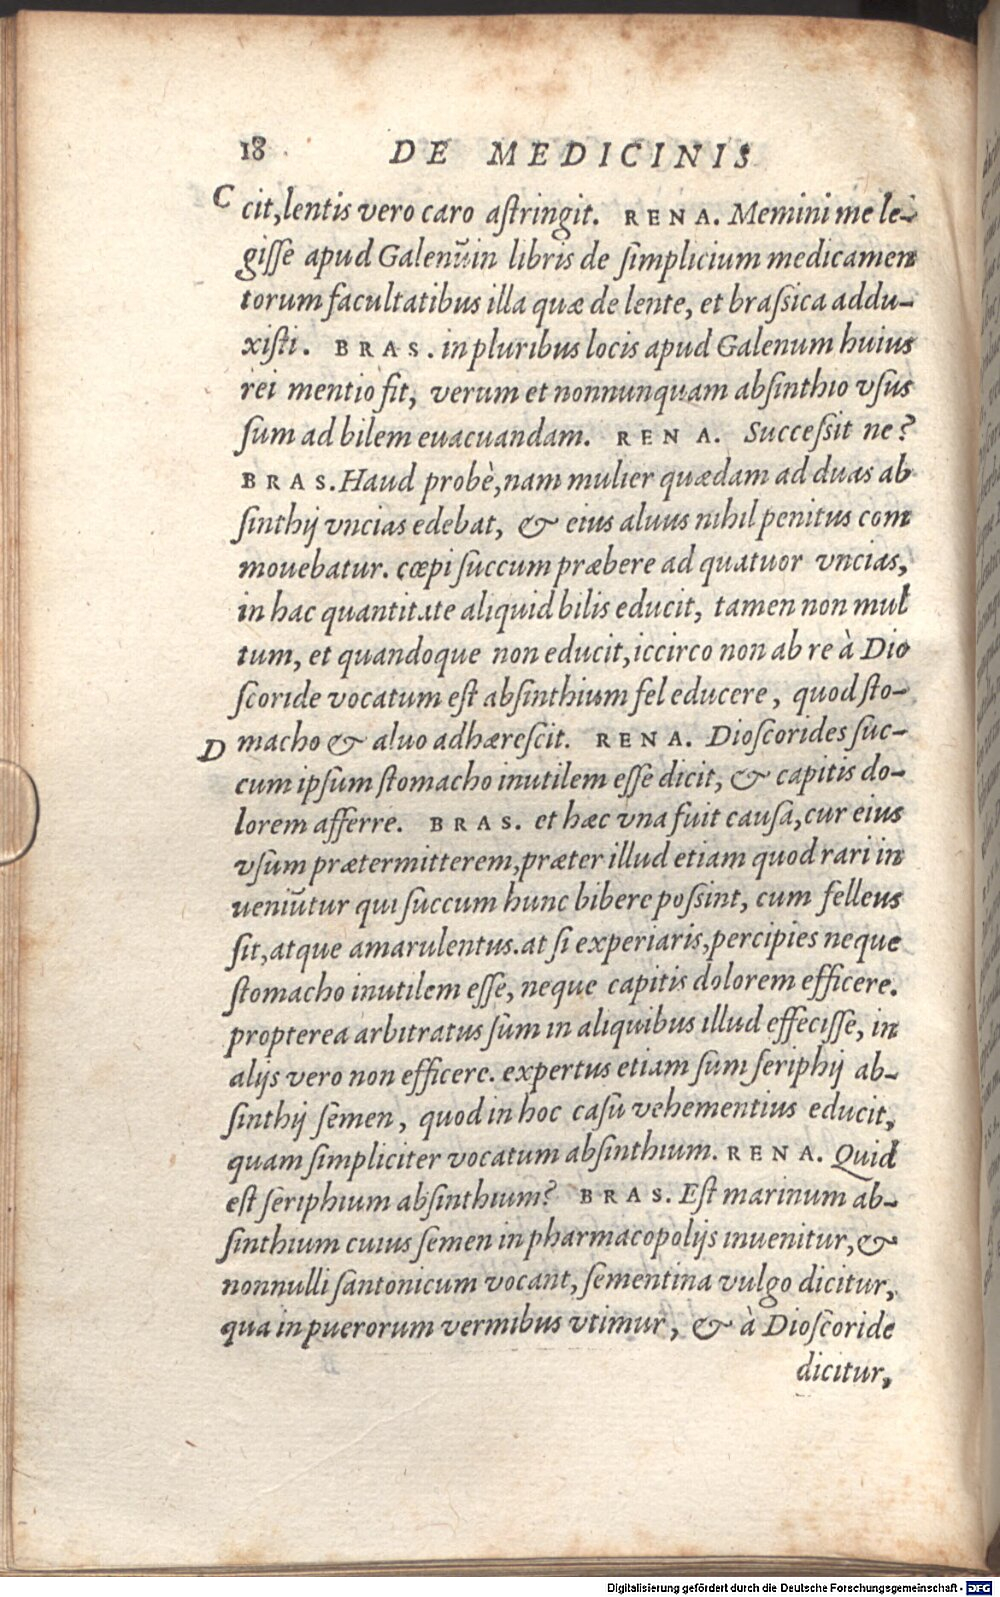 18 DE MEDICINIS
C
cit, lentis vero caro aſtringit. RENA. Memini me le-
giſſe apud Galenũ in libris de ſimplicium medicamen
torum facultatibus illa quæ de lente, et braſsica addu-
xiſti. BRAS. in pluribus locis apud Galenum huius
rei mentio fit, verum et nonnunquam abſinthio vſus
ſum ad bilem euacuandam. RENA. Succeſsit ne?
BRAS. Haud probè, nam mulier quædam ad duas ab
ſinthij vncias edebat, & eius aluus nihil penitus com
mouebatur. cœpi ſuccum præbere ad quatuor vncias,
in hac quantitate aliquid bilis educit, tamen non mul
tum, et quandoque non educit, iccirco non ab re à Dio
ſcoride vocatum eſt abſinthium fel educere, quod ſto-
D
macho & aluo adhæreſcit. RENA. Dioſcorides ſuc-
cum ipſum ſtomacho inutilem eſſe dicit, & capitis do-
lorem afferre. BRAS. et hæc vna fuit cauſa, cur eius
vſum prætermitterem, præter illud etiam quod rari in
ueniũtur qui ſuccum hunc bibere poſsint, cum felleus
ſit, atque amarulentus. at ſi experiaris, percipies neque
ſtomacho inutilem eſſe, neque capitis dolorem efficere.
propterea arbitratus ſum in aliquibus illud effeciſſe, in
alijs vero non efficere. expertus etiam ſum ſeriphij ab-
ſinthij ſemen, quod in hoc caſu vehementius educit,
quam ſimpliciter vocatum abſinthium. RENA. Quid
eſt ſeriphium abſinthium? BRAS. Eſt marinum ab-
ſinthium cuius ſemen in pharmacopolijs inuenitur, &
nonnulli ſantonicum vocant, ſementina vulgo dicitur,
qua in puerorum vermibus vtimur, & à Dioſcoride
dicitur,
Digitalisierung gefördert durch die Deutsche Forschungsgemeinschaft - DFG